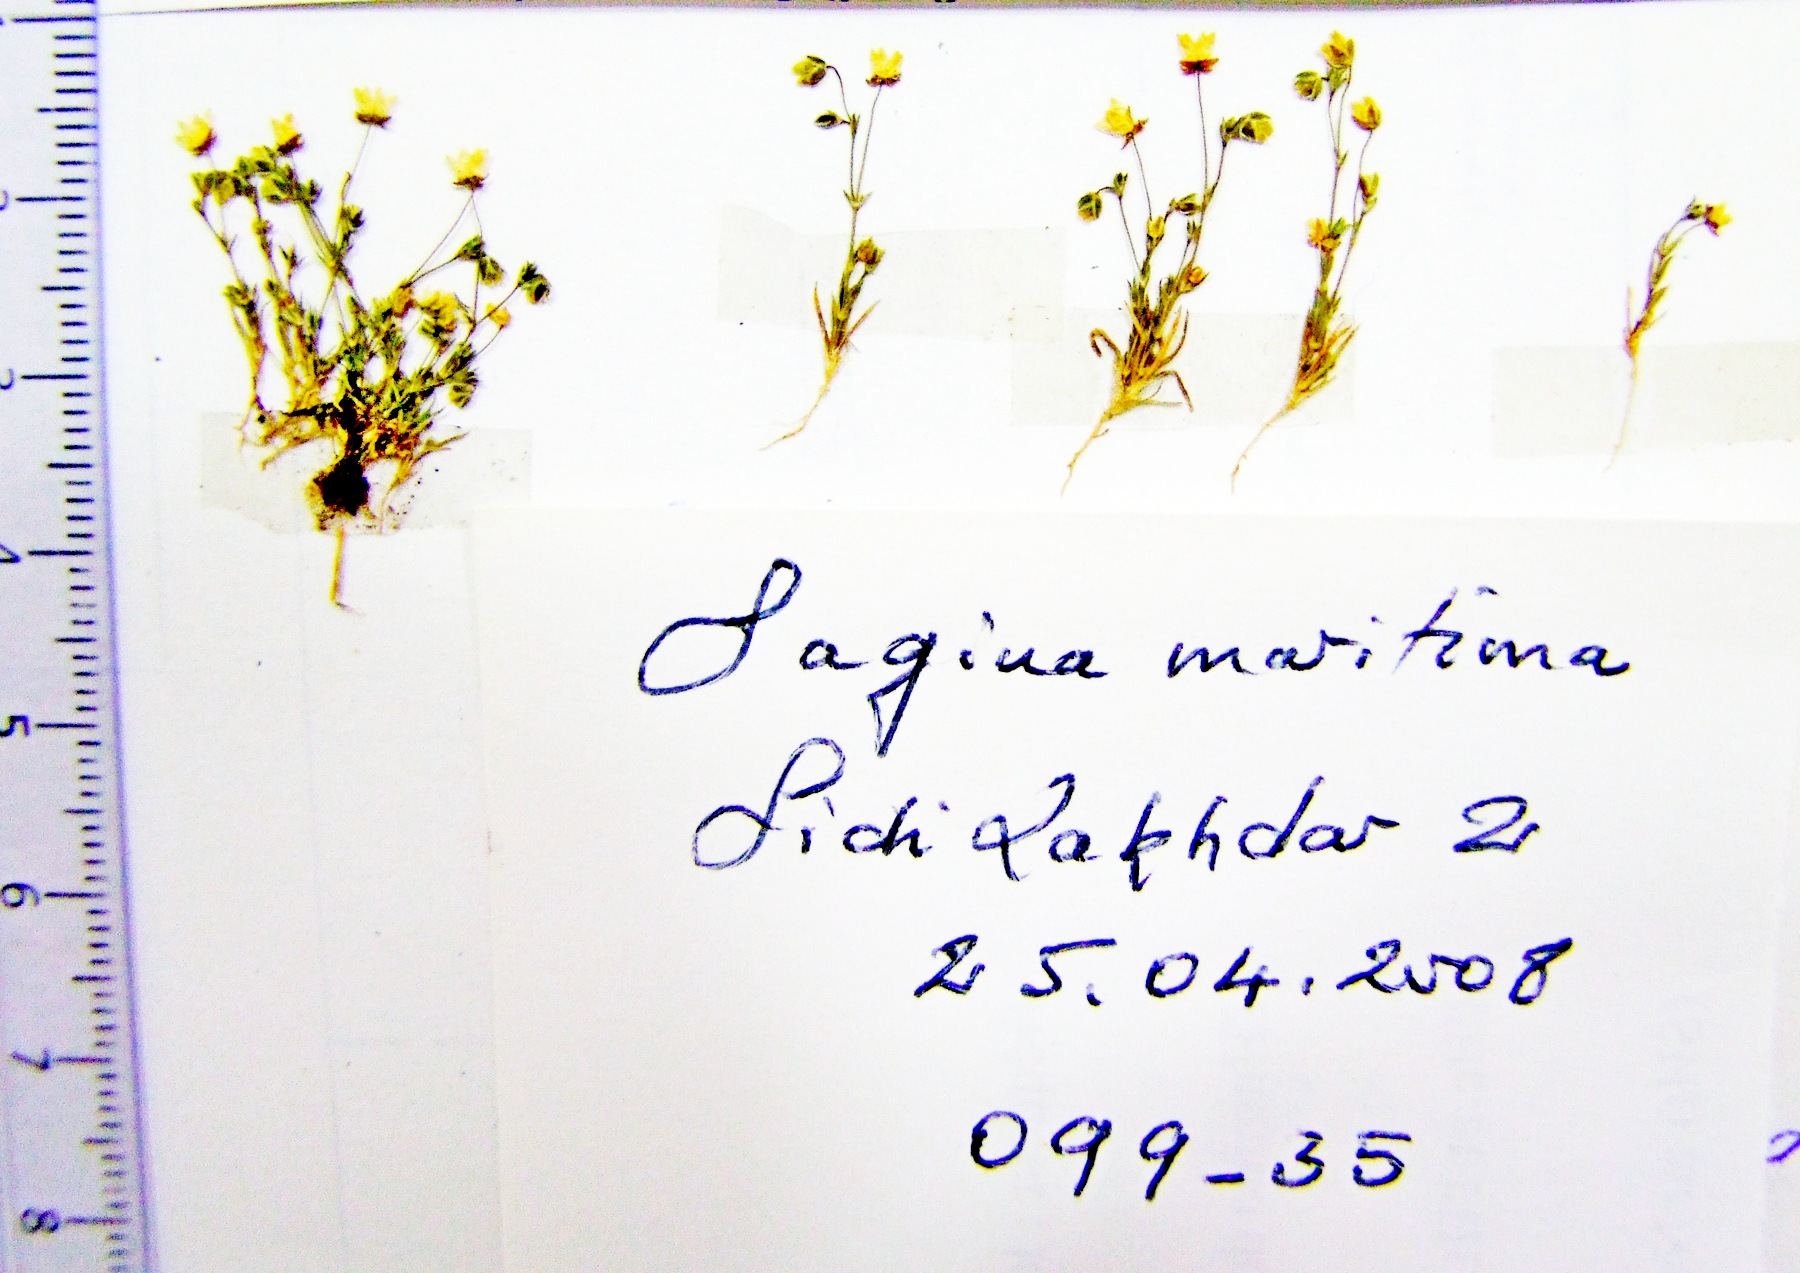 Sagina maritima
Sidi Lakhdar 2
25.04.2008
099-35
2
3
4
5
6
7
8